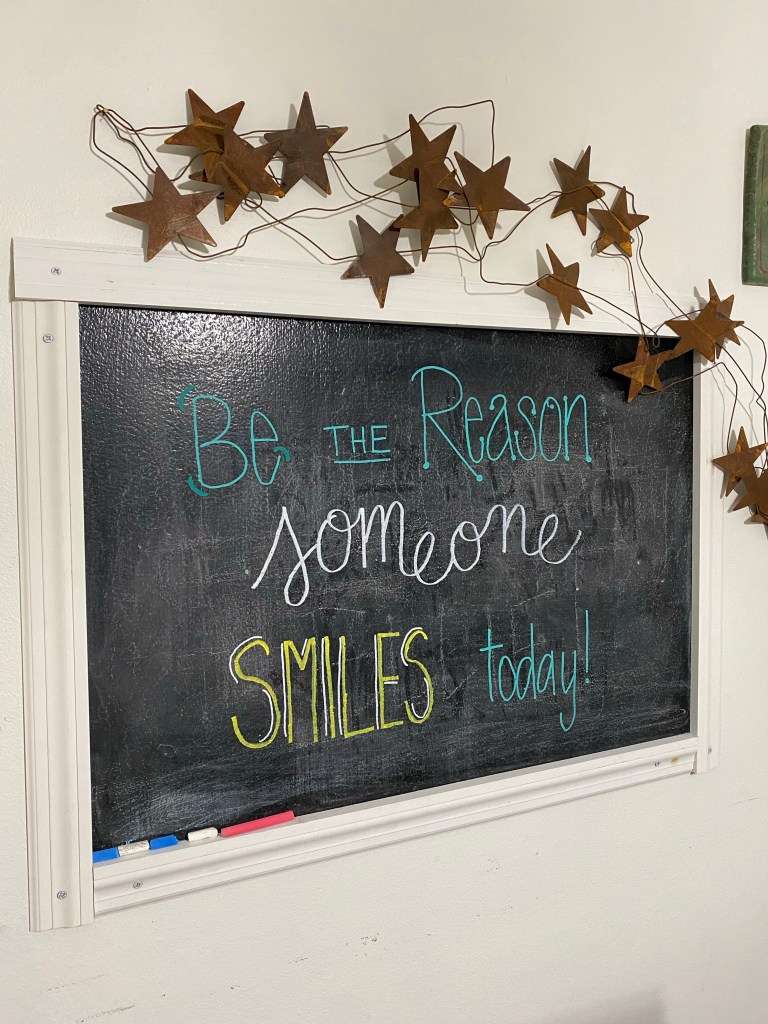 Be THE Reason
someone
SMILES today!